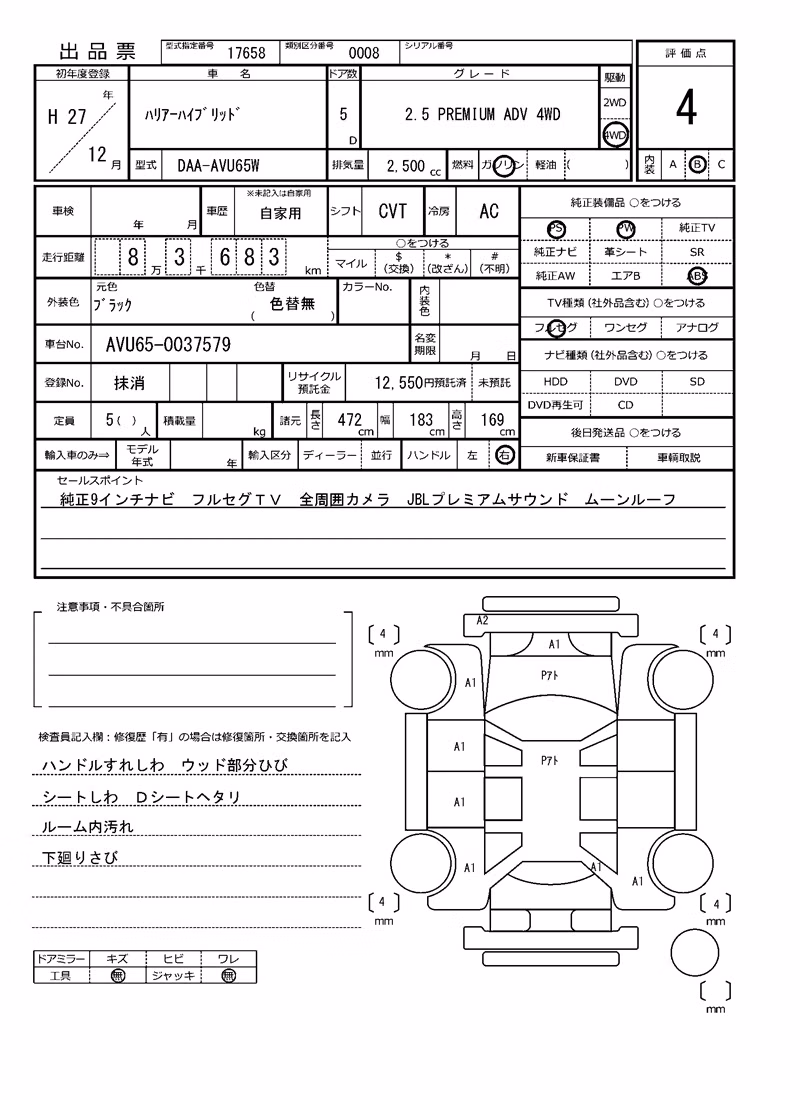 出品票 型式指定番号 17658 類別区分番号 0008 シリアル番号
評価点
4
内装 A B C
初年度登録 車名 ドア数 グレード 駆動
H 27 年 12 月 ﾊﾘｱｰﾊｲﾌﾞﾘｯﾄﾞ 5 D 2.5 PREMIUM ADV 4WD 2WD 4WD
型式 DAA-AVU65W 排気量 2,500 cc 燃料 ガソリン 軽油 ( )
車検 年 月 車歴 ※未記入は自家用 自家用 シフト CVT 冷房 AC
走行距離 8 万 3 千 6 8 3 km ○をつける
マイル $ (交換) * (改ざん) # (不明)
外装色 元色 ﾌﾞﾗｯｸ 色替 ( 色替無 ) カラーNo. 内装色
車台No. AVU65-0037579 名変期限 月 日
登録No. 抹消 リサイクル預託金 12,550円預託済 未預託
定員 5 ( ) 人 積載量 kg 諸元 長さ 472 cm 幅 183 cm 高さ 169 cm
輸入車のみ⇒ モデル年式 年 輸入区分 ディーラー 並行 ハンドル 左 右
純正装備品 ○をつける
PS PW 純正TV
純正ナビ 革シート SR
純正AW エアB ABS
TV種類 (社外品含む) ○をつける
フルセグ ワンセグ アナログ
ナビ種類 (社外品含む) ○をつける
HDD DVD SD
DVD再生可 CD
後日発送品 ○をつける
新車保証書 車輌取説
セールスポイント
純正9インチナビ フルセグＴＶ 全周囲カメラ JBLプレミアムサウンド ムーンルーフ
注意事項・不具合箇所
検査員記入欄：修復歴「有」の場合は修復箇所・交換箇所を記入
ハンドルすれしわ ウッド部分ひび
シートしわ Ｄシートヘタリ
ルーム内汚れ
下廻りさび
ドアミラー キズ ヒビ ワレ
工具 無 ジャッキ 無
A2
4 mm A1 4 mm
A1 Pｱﾄ
A1 Pｱﾄ
A1
A1 A1 A1
4 mm 4 mm
mm